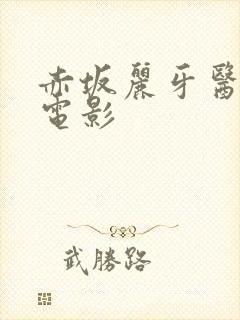 赤坂麗牙醫
電影
武勝路